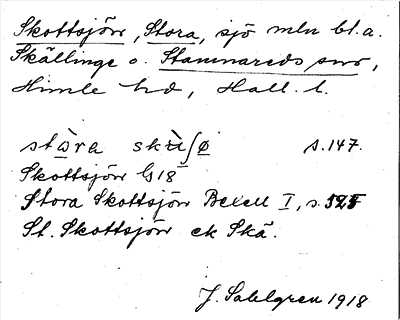 Skottsjön, Stora, sjö mln bl.a.
Skällinge o. Stamnareds snr,
Himle hd, Hall. l.
s. 147.
Skottsjön G 18
Stora Skottsjön Bexell I, s.
St. Skottsjön ek Skä.
J. Sahlgren 1918